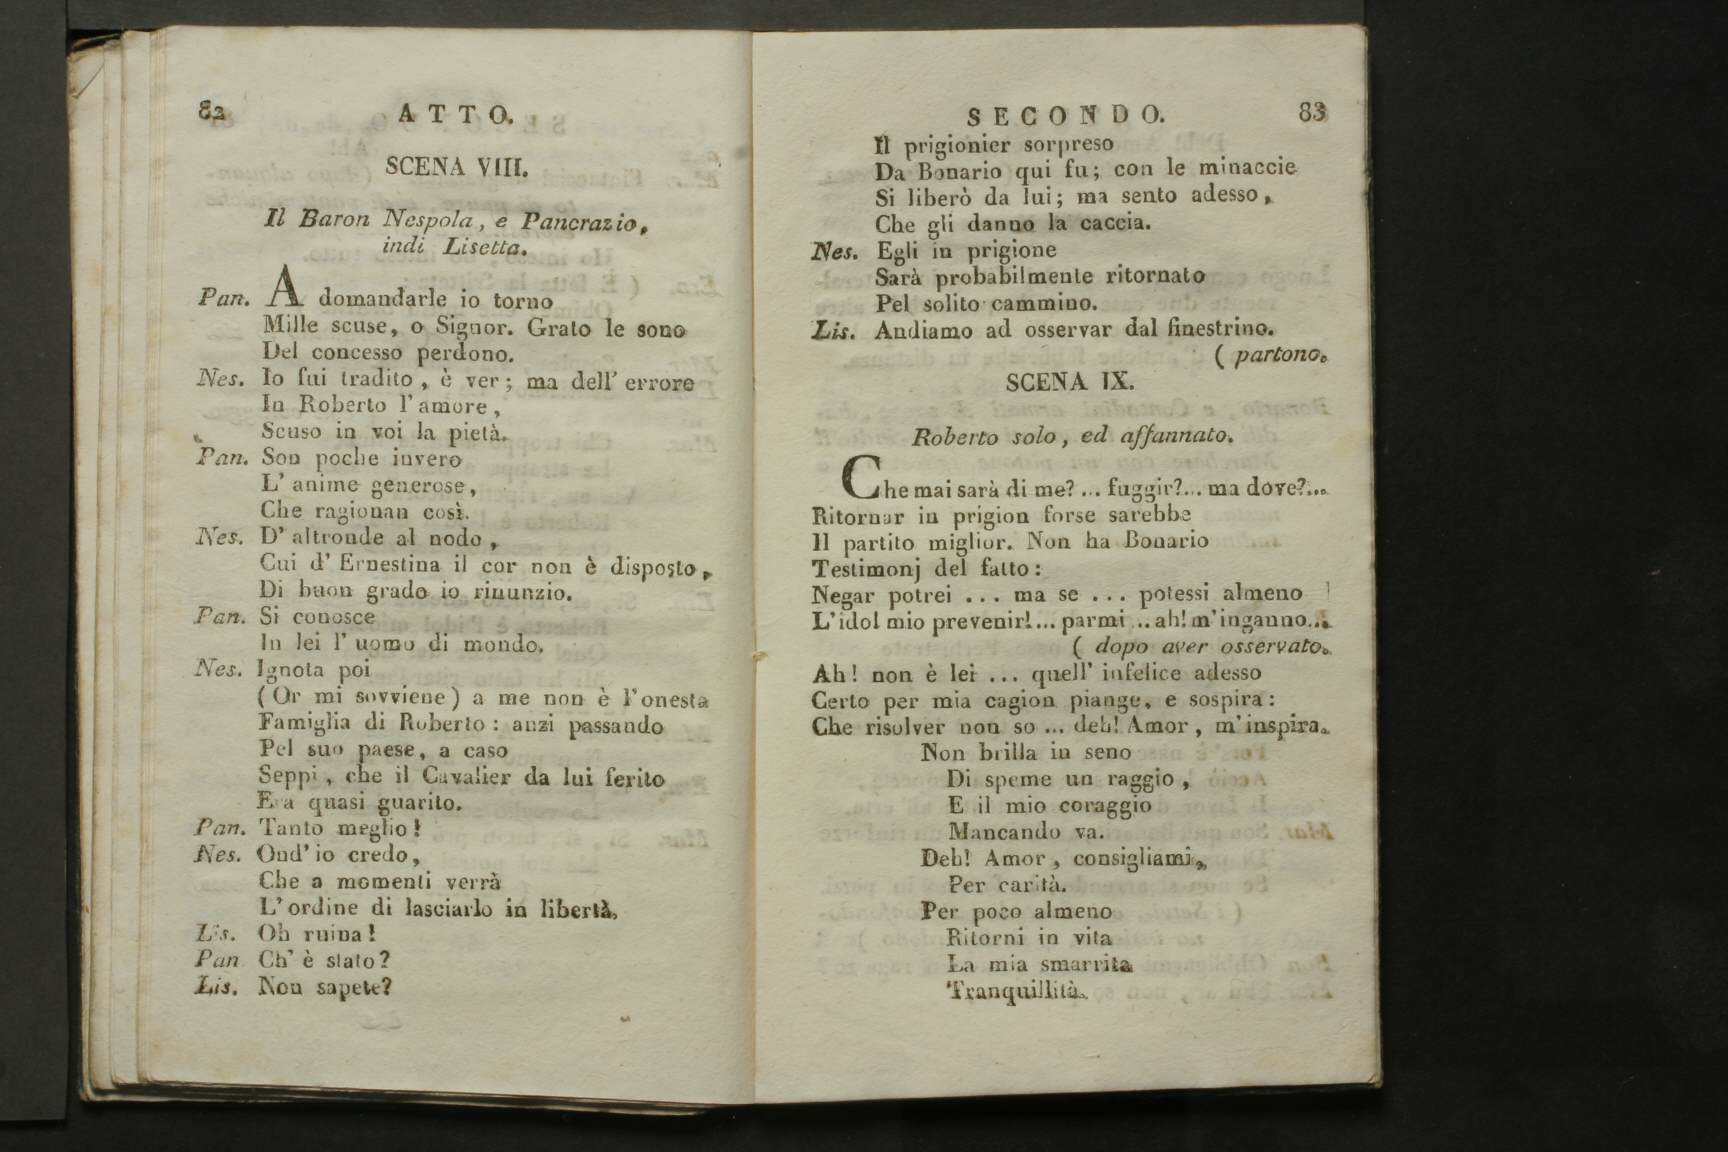 82
ATTO.
SCENA VIII.
Il Baron Nespola, e Pancrazio,
indi Lisetta.
Pan. A domandarle io torno
Mille scuse, o Signor. Grato le sono
Del concesso perdono.
Nes. Io fui tradito, è ver; ma dell' errore
In Roberto l'amore,
Scuso in voi la pietà.
Pan. Son poche invero
L'anime generose,
Che ragionan così.
Nes. D' altronde al nodo,
Cui d'Ernestina il cor non è disposto,
Di buon grado io rinunzio.
Pan. Si conosce
In lei l'uomo di mondo.
Nes. Ignota poi
(Or mi sovviene) a me non è l'onesta
Famiglia di Roberto: anzi passando
Pel suo paese, a caso
Seppi, che il Cavalier da lui ferito
Era quasi guarito.
Pan. Tanto meglio!
Nes. Ond'io credo,
Che a momenti verrà
L'ordine di lasciarlo in libertà,
Lis. Oh ruina!
Pan Ch' è stato?
Lis. Non sapete?
SECONDO.
83
Il prigionier sorpreso
Da Bonario qui fu; con le minaccie
Si liberò da lui; ma sento adesso,
Che gli danno la caccia.
Nes. Egli in prigione
Sarà probabilmente ritornato
Pel solito cammino.
Lis. Andiamo ad osservar dal finestrino.
( partono.
SCENA IX.
Roberto solo, ed affannato.
Che mai sarà di me? ... fuggir?... ma dove?...
Ritornar in prigion forse sarebbe
Il partito miglior. Non ha Bonario
Testimonj del fatto:
Negar potrei ... ma se ... potessi almeno
L'idol mio prevenir!... parmi ... ah! m'inganno...
( dopo aver osservato.
Ah! non è lei ... quell' infelice adesso
Certo per mia cagion piange, e sospira:
Che risolver non so ... deh! Amor, m'inspira.
Non brilla in seno
Di speme un raggio,
E il mio coraggio
Mancando va.
Deh! Amor, consigliami,
Per carità.
Per poco almeno
Ritorni in vita
La mia smarrita
Tranquillità.